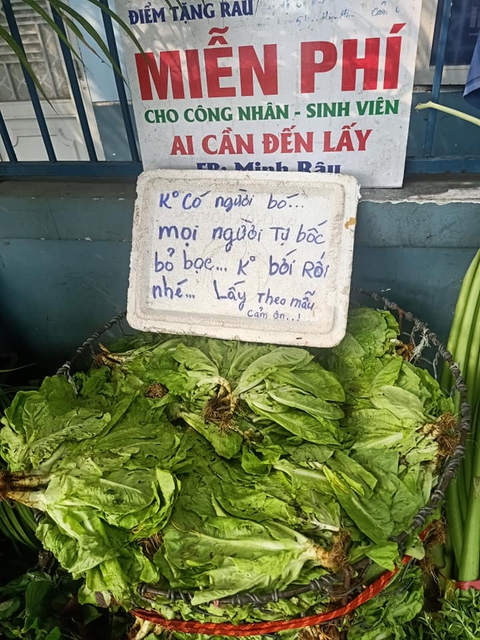 ĐIỂM TẶNG RAU
MIỄN PHÍ
CHO CÔNG NHÂN - SINH VIÊN
AI CẦN ĐẾN LẤY
FB: Minh Râu
K° Có người bó...
mọi người Tự bốc
bỏ bọc... K° bới Rối
nhé... Lấy Theo mẫu
Cảm ơn..!